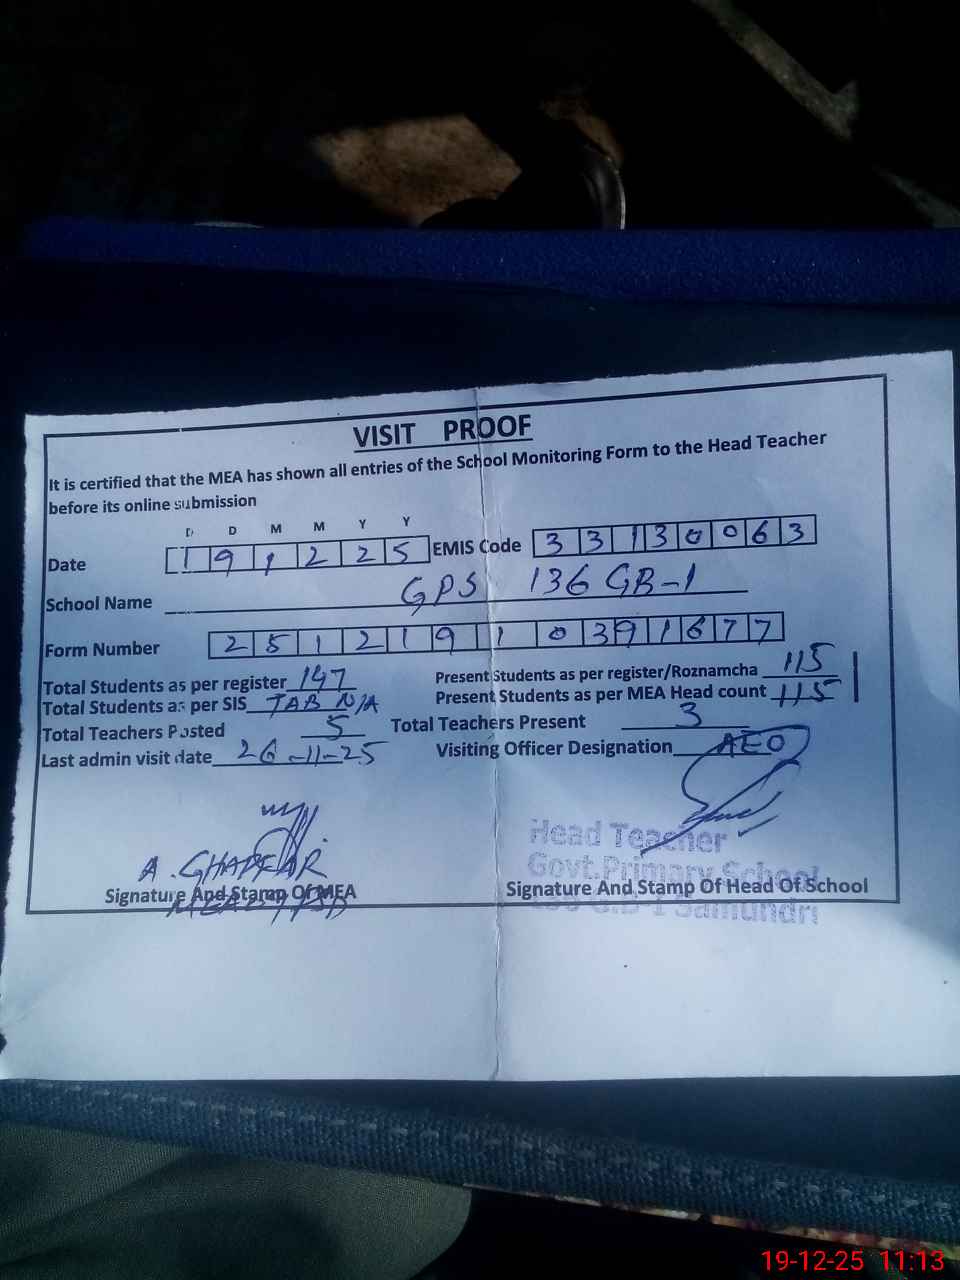 VISIT PROOF
It is certified that the MEA has shown all entries of the School Monitoring Form to the Head Teacher
before its online submission
D D M M Y Y
Date 1 9 1 2 2 5 EMIS Code 3 3 1 3 0 0 6 3
School Name GPS 136 GB-1
Form Number 2 5 1 2 1 9 1 0 3 9 1 6 7 7
Total Students as per register 147 Present Students as per register/Roznamcha 115
Total Students as per SIS TAB N/A Present Students as per MEA Head count 115
Total Teachers Posted 5 Total Teachers Present 3
Last admin visit date 26-11-25 Visiting Officer Designation AEO
Head Teacher
Govt.Primary School
A. GHAFFAR
Signature And Stamp Of MEA Signature And Stamp Of Head Of School
136 G.B-1 Samundri
19-12-25 11:13